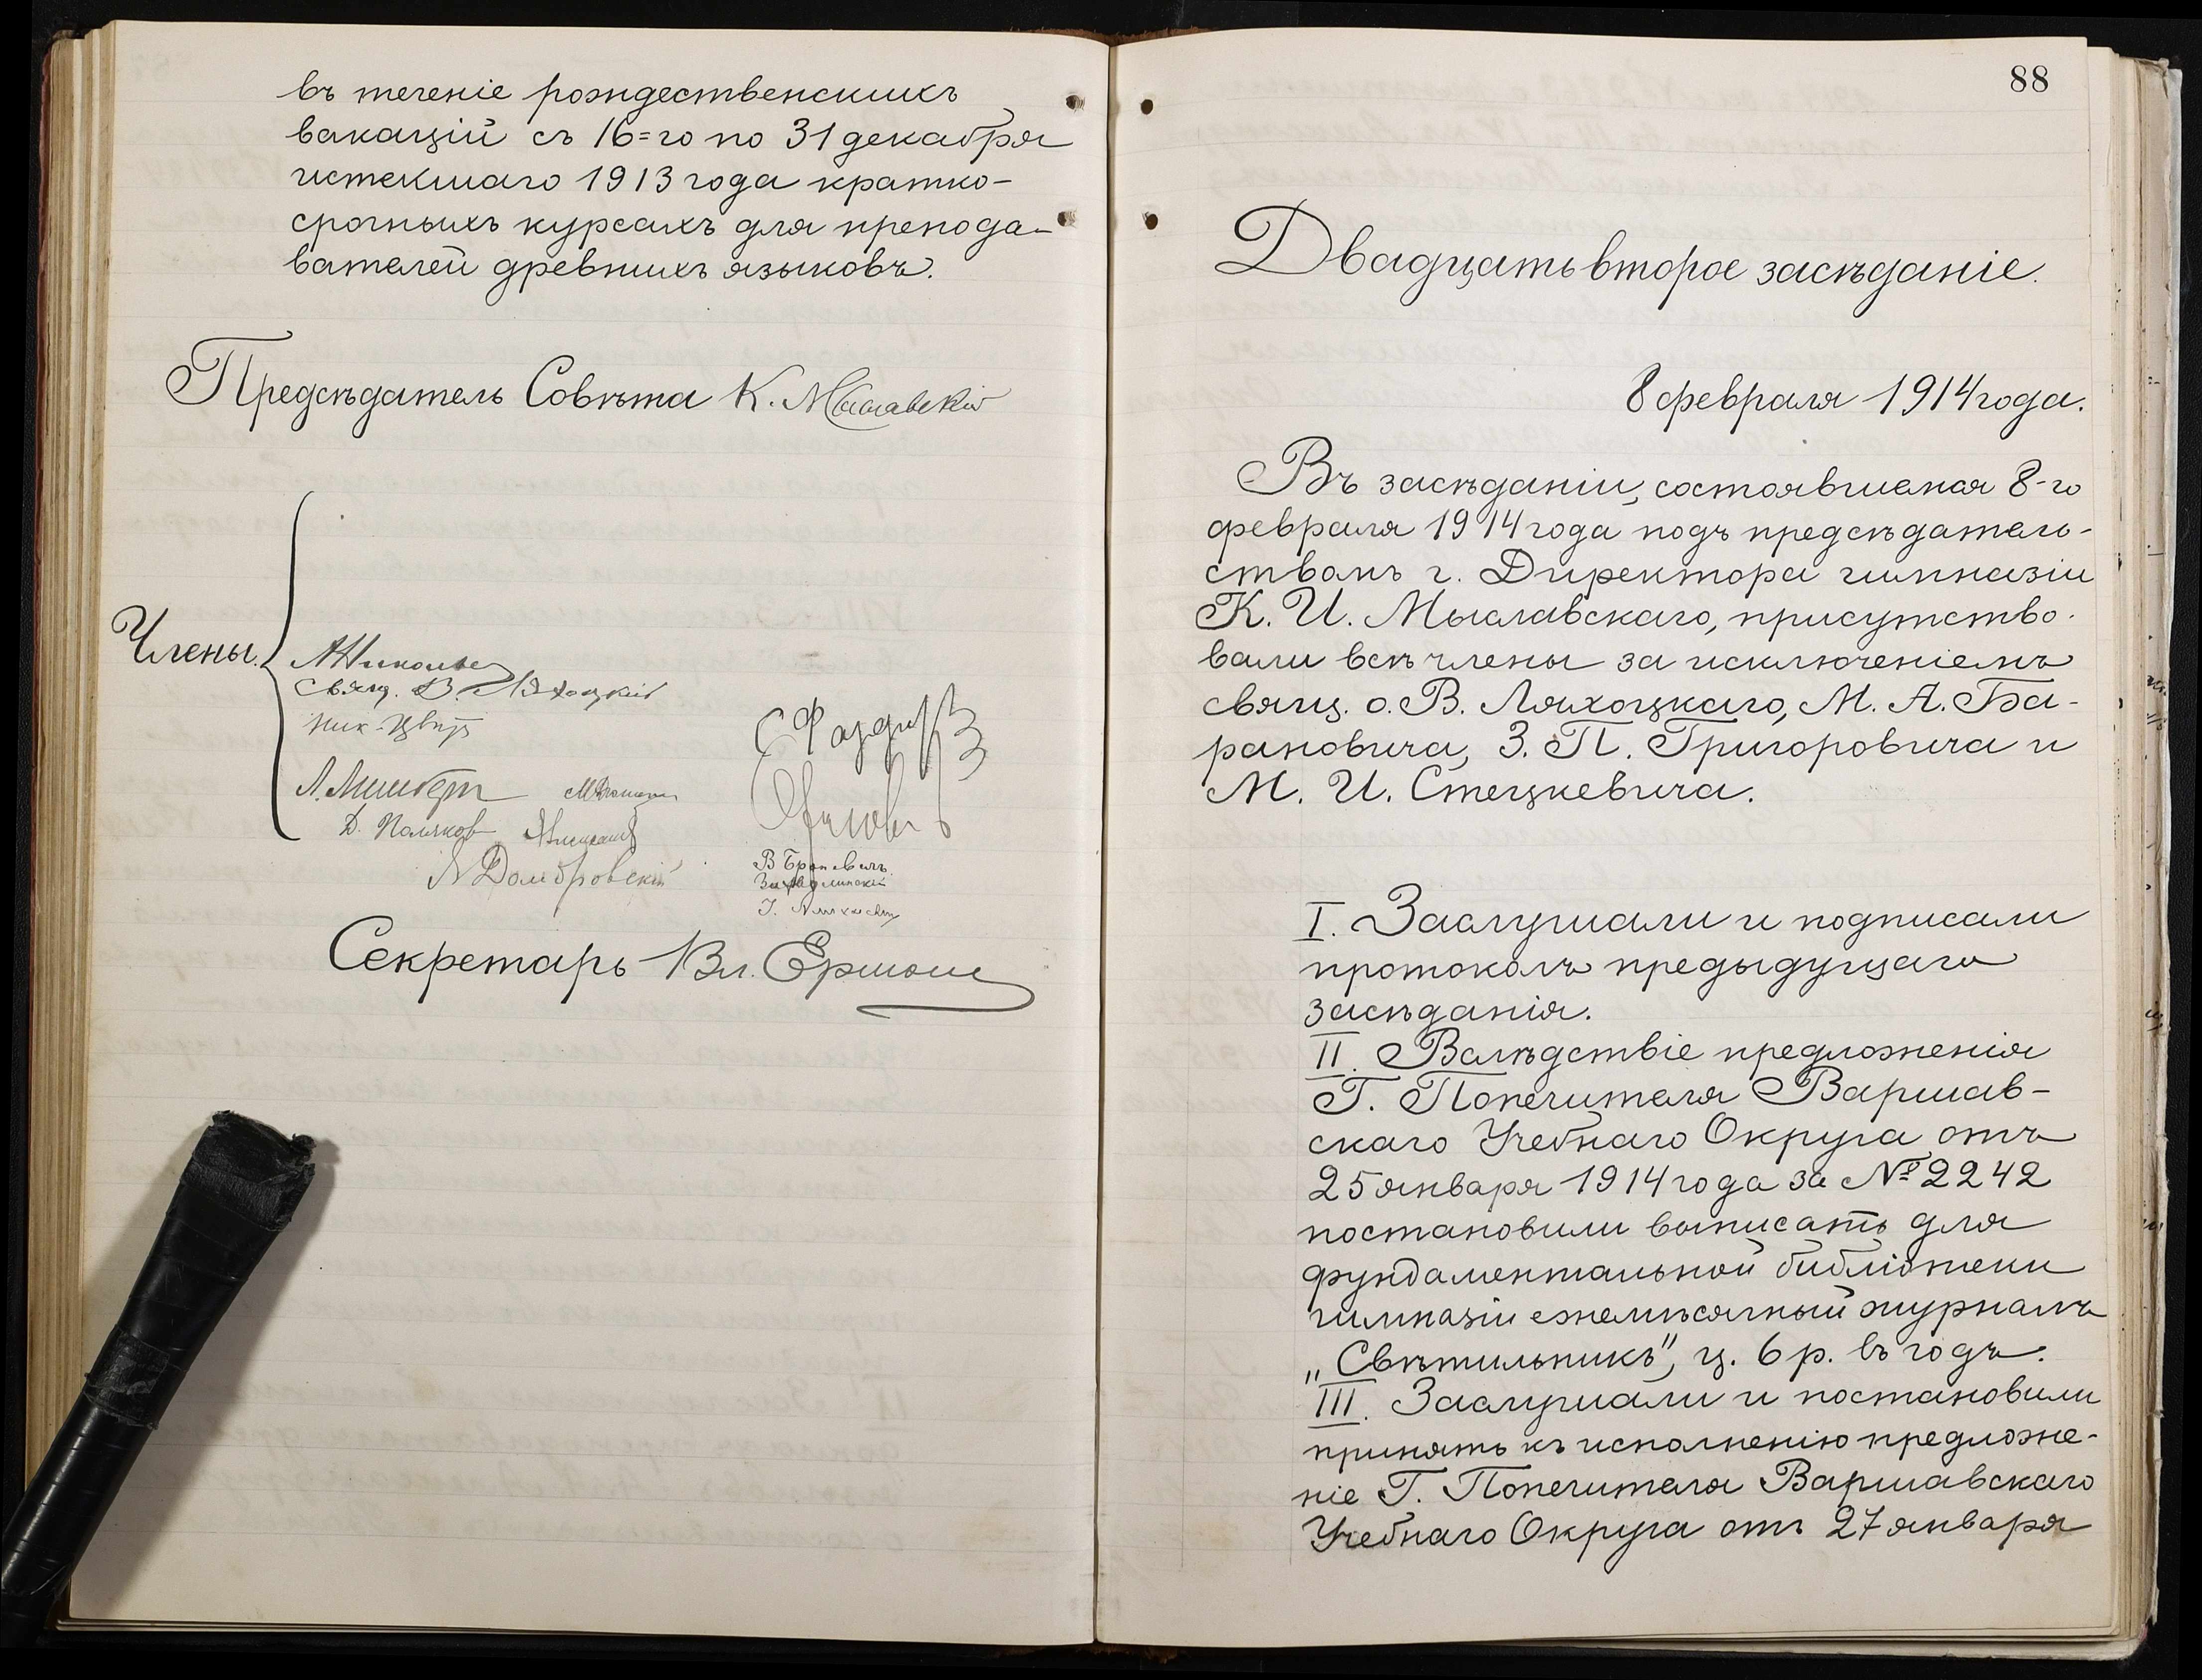 въ теченіе рождественскихъ
вакацій съ 16=го по 31 декабря
истекшаго 1913 года кратко-
срочныхъ курсахъ для препода-
вателей древнихъ языковъ.
Предсѣдатель Совѣта К. Мыславскій
Члены.
Свящ. В. Ляхоцкій
Ник.
Д. Поляков
А Домбровскій
Секретарь Вл.
88
Двадцать второе засѣданіе.
8 февраля 1914 года.
Въ засѣданіи, состоявшемся 8-го
февраля 1914 года подъ предсѣдатель-
ствомъ г. Директора гимназіи
К. И. Мыславскаго, присутство-
вали всѣ члены за исключеніемъ
свящ. о. В. Ляхоцкаго, М. А. Ба-
рановича, З. П. Григоровича и
М. И. Стецкевича.
I. Заслушали и подписали
протоколъ предыдущаго
засѣданія.
II. Вслѣдствіе предложенія
Г. Попечителя Варшав-
скаго Учебнаго Округа отъ
25 января 1914 года за № 2242
постановили выписать для
фундаментальной библіотеки
гимназіи ежемѣсячный журналъ
„Свѣтильникъ", ц. 6 р. въ годъ.
III. Заслушали и постановили
принять къ исполненію предложе-
ніе Г. Попечителя Варшавскаго
Учебнаго Округа отъ 27 января